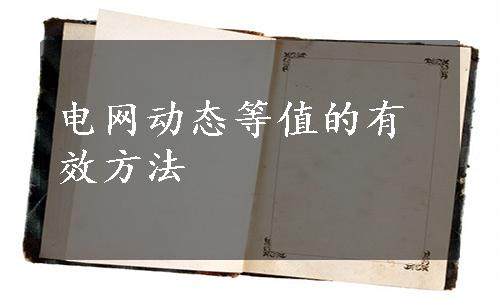 电网动态等值的有
效方法